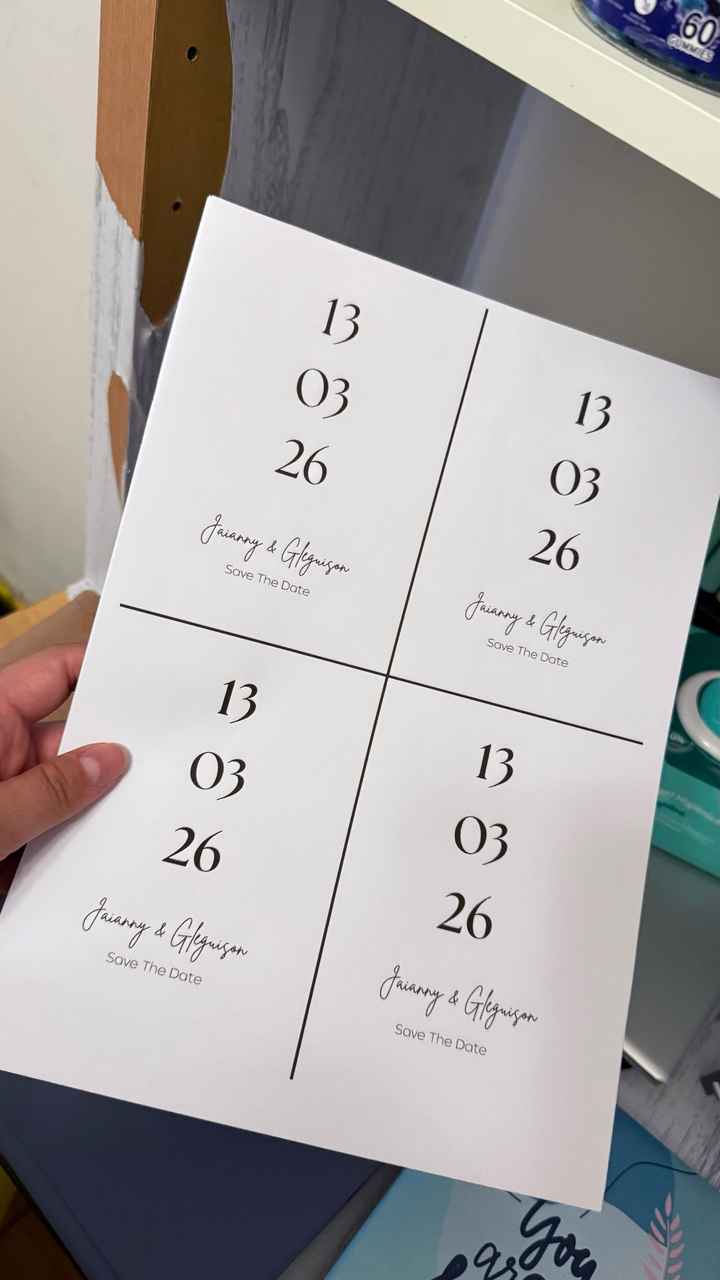 60
GUMMIES
13
03
26
Jaianny & Gleguison
Save The Date
13
03
26
Jaianny & Gleguison
Save The Date
13
03
26
Jaianny & Gleguison
Save The Date
13
03
26
Jaianny & Gleguison
Save The Date
You